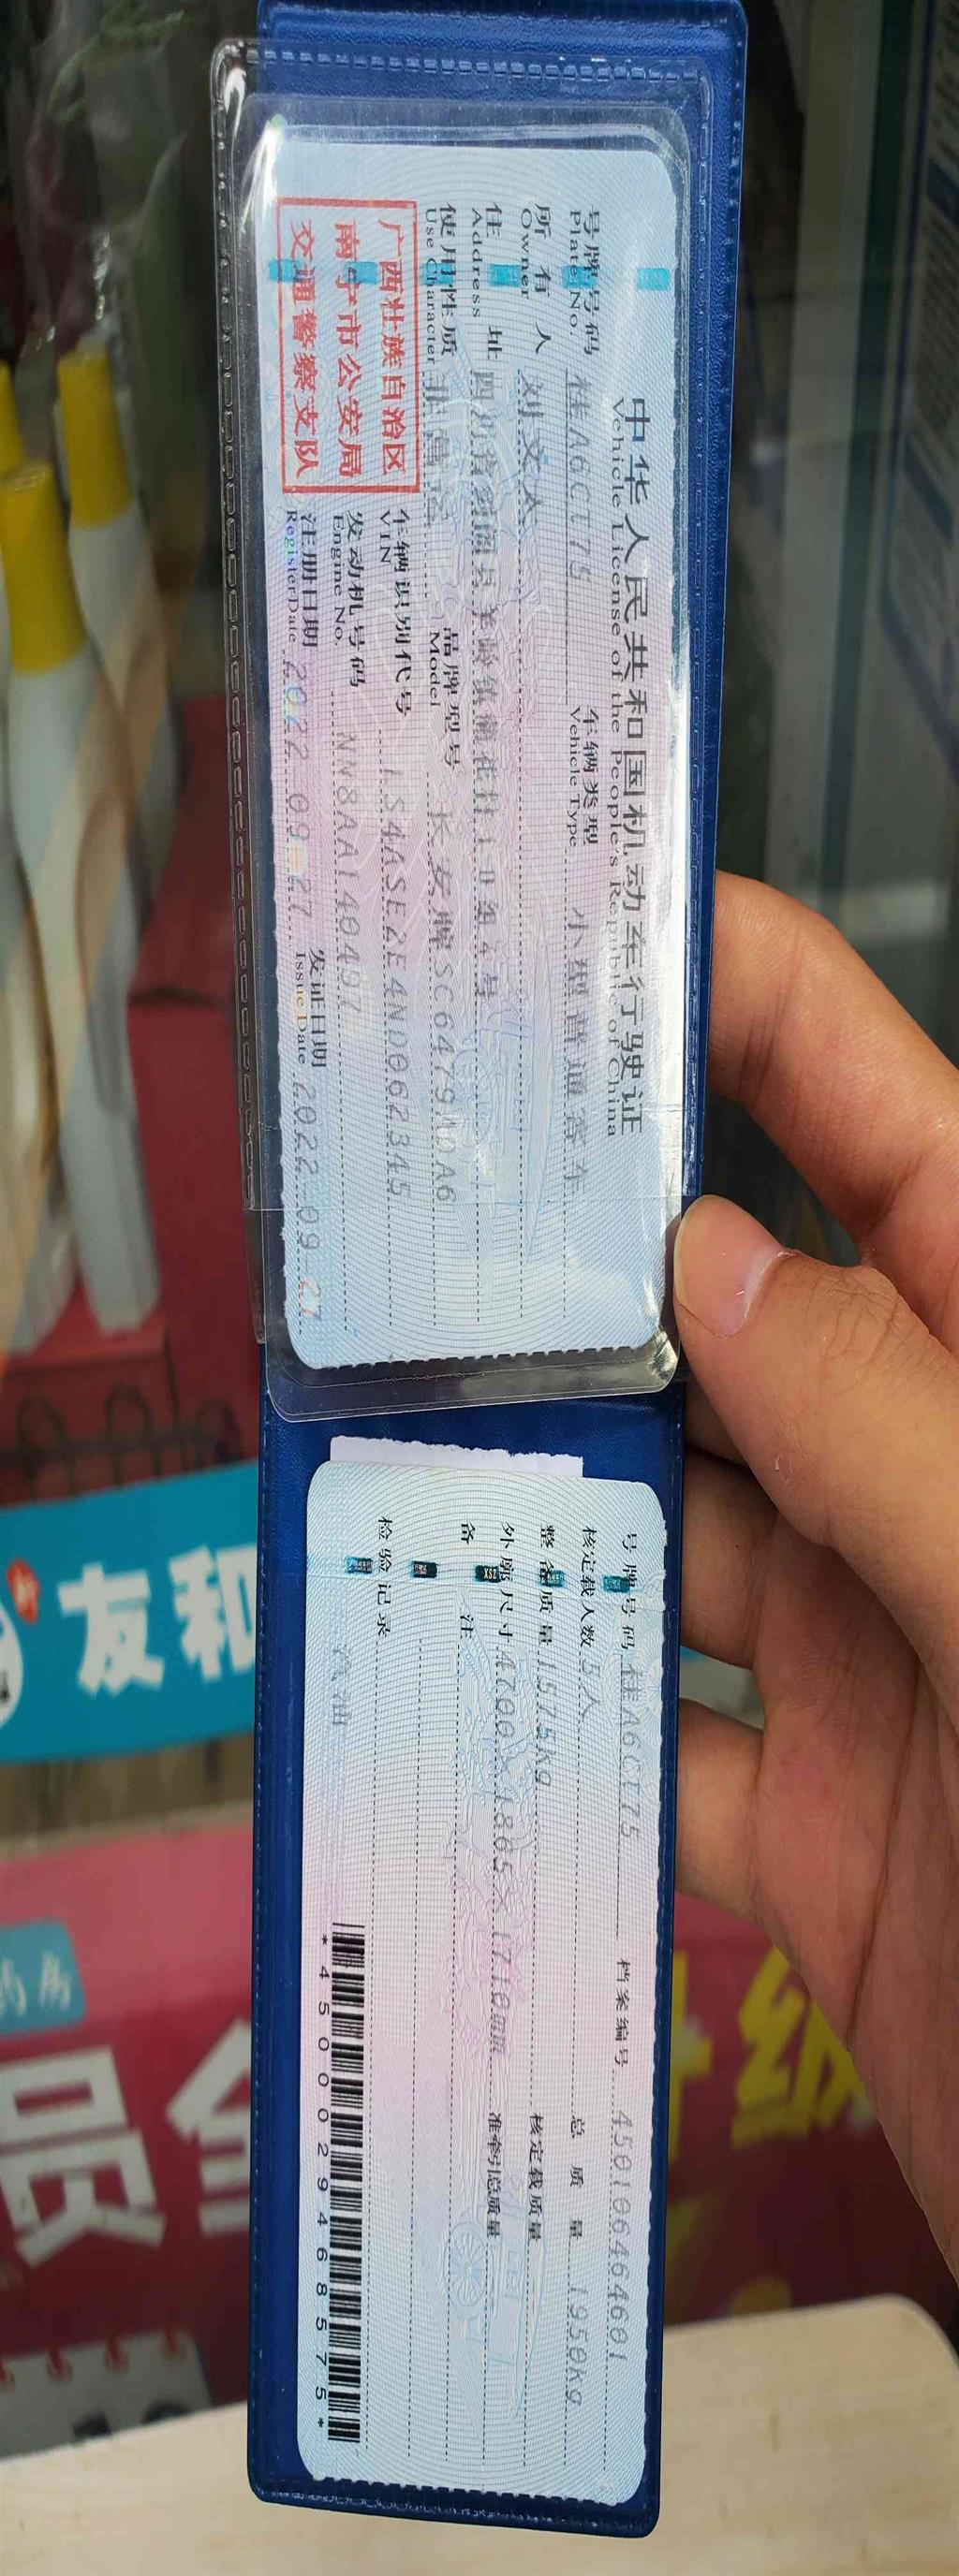 中华人民共和国机动车行驶证
Vehicle License of the People's Republic of China
号牌号码 桂A6CT75 车辆类型 小型普通客车
Plate No. Vehicle Type
所有人 刘文人
Owner
住址 四川省剑阁县羊岭镇菊花村10组4号
Address
使用性质 非营运 品牌型号 长安牌SC6479ADA6
Use Character Model
广西壮族自治区
南宁市公安局
交通警察支队
车辆识别代号 LS4ASE2E4ND062345
VIN
发动机号码 NN8AA140497
Engine No.
注册日期 2022-09-27 发证日期 2022-09-27
Register Date Issue Date
号牌号码 桂A6CT75 档案编号 450106464601
核定载人数 5人 总质量 1950kg
整备质量 1575kg 核定载质量
外廓尺寸 4700X1865X1710mm 准牵引总质量
备注
检验记录
汽油
*4500029468575*
友和
员
升级